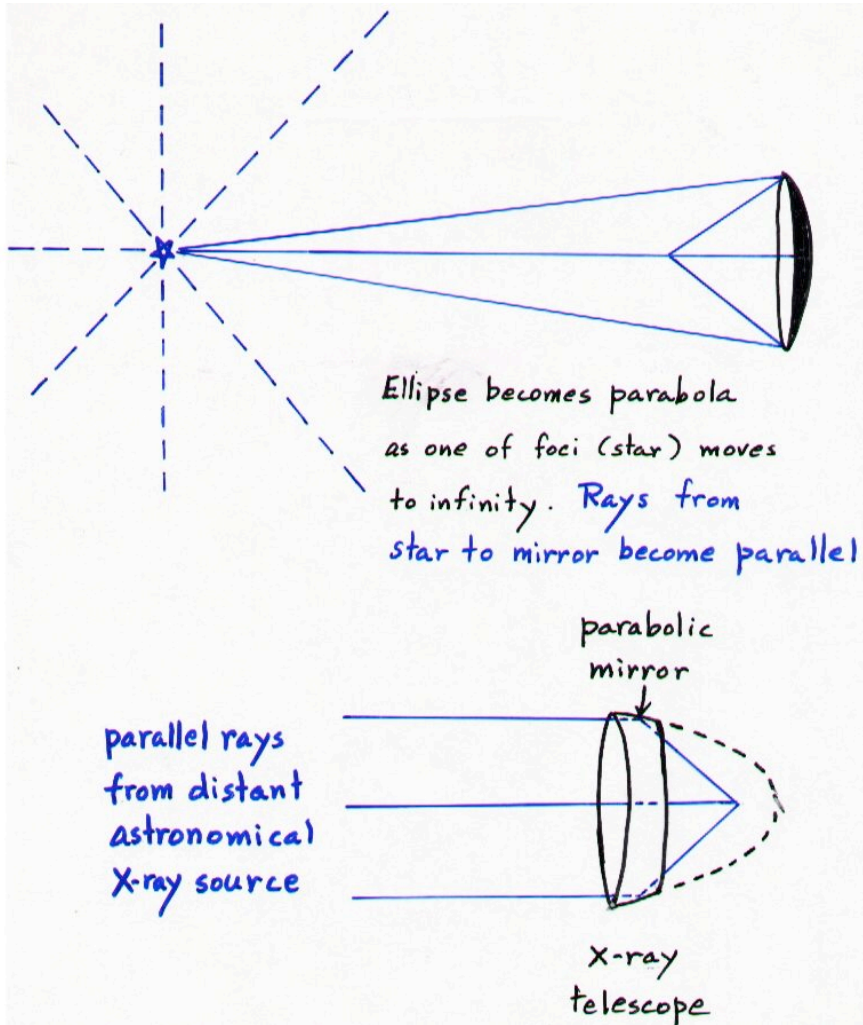 Ellipse becomes parabola
as one of foci (star) moves
to infinity. Rays from
star to mirror become parallel
parabolic
mirror
parallel rays
from distant
astronomical
X-ray source
x-ray
telescope